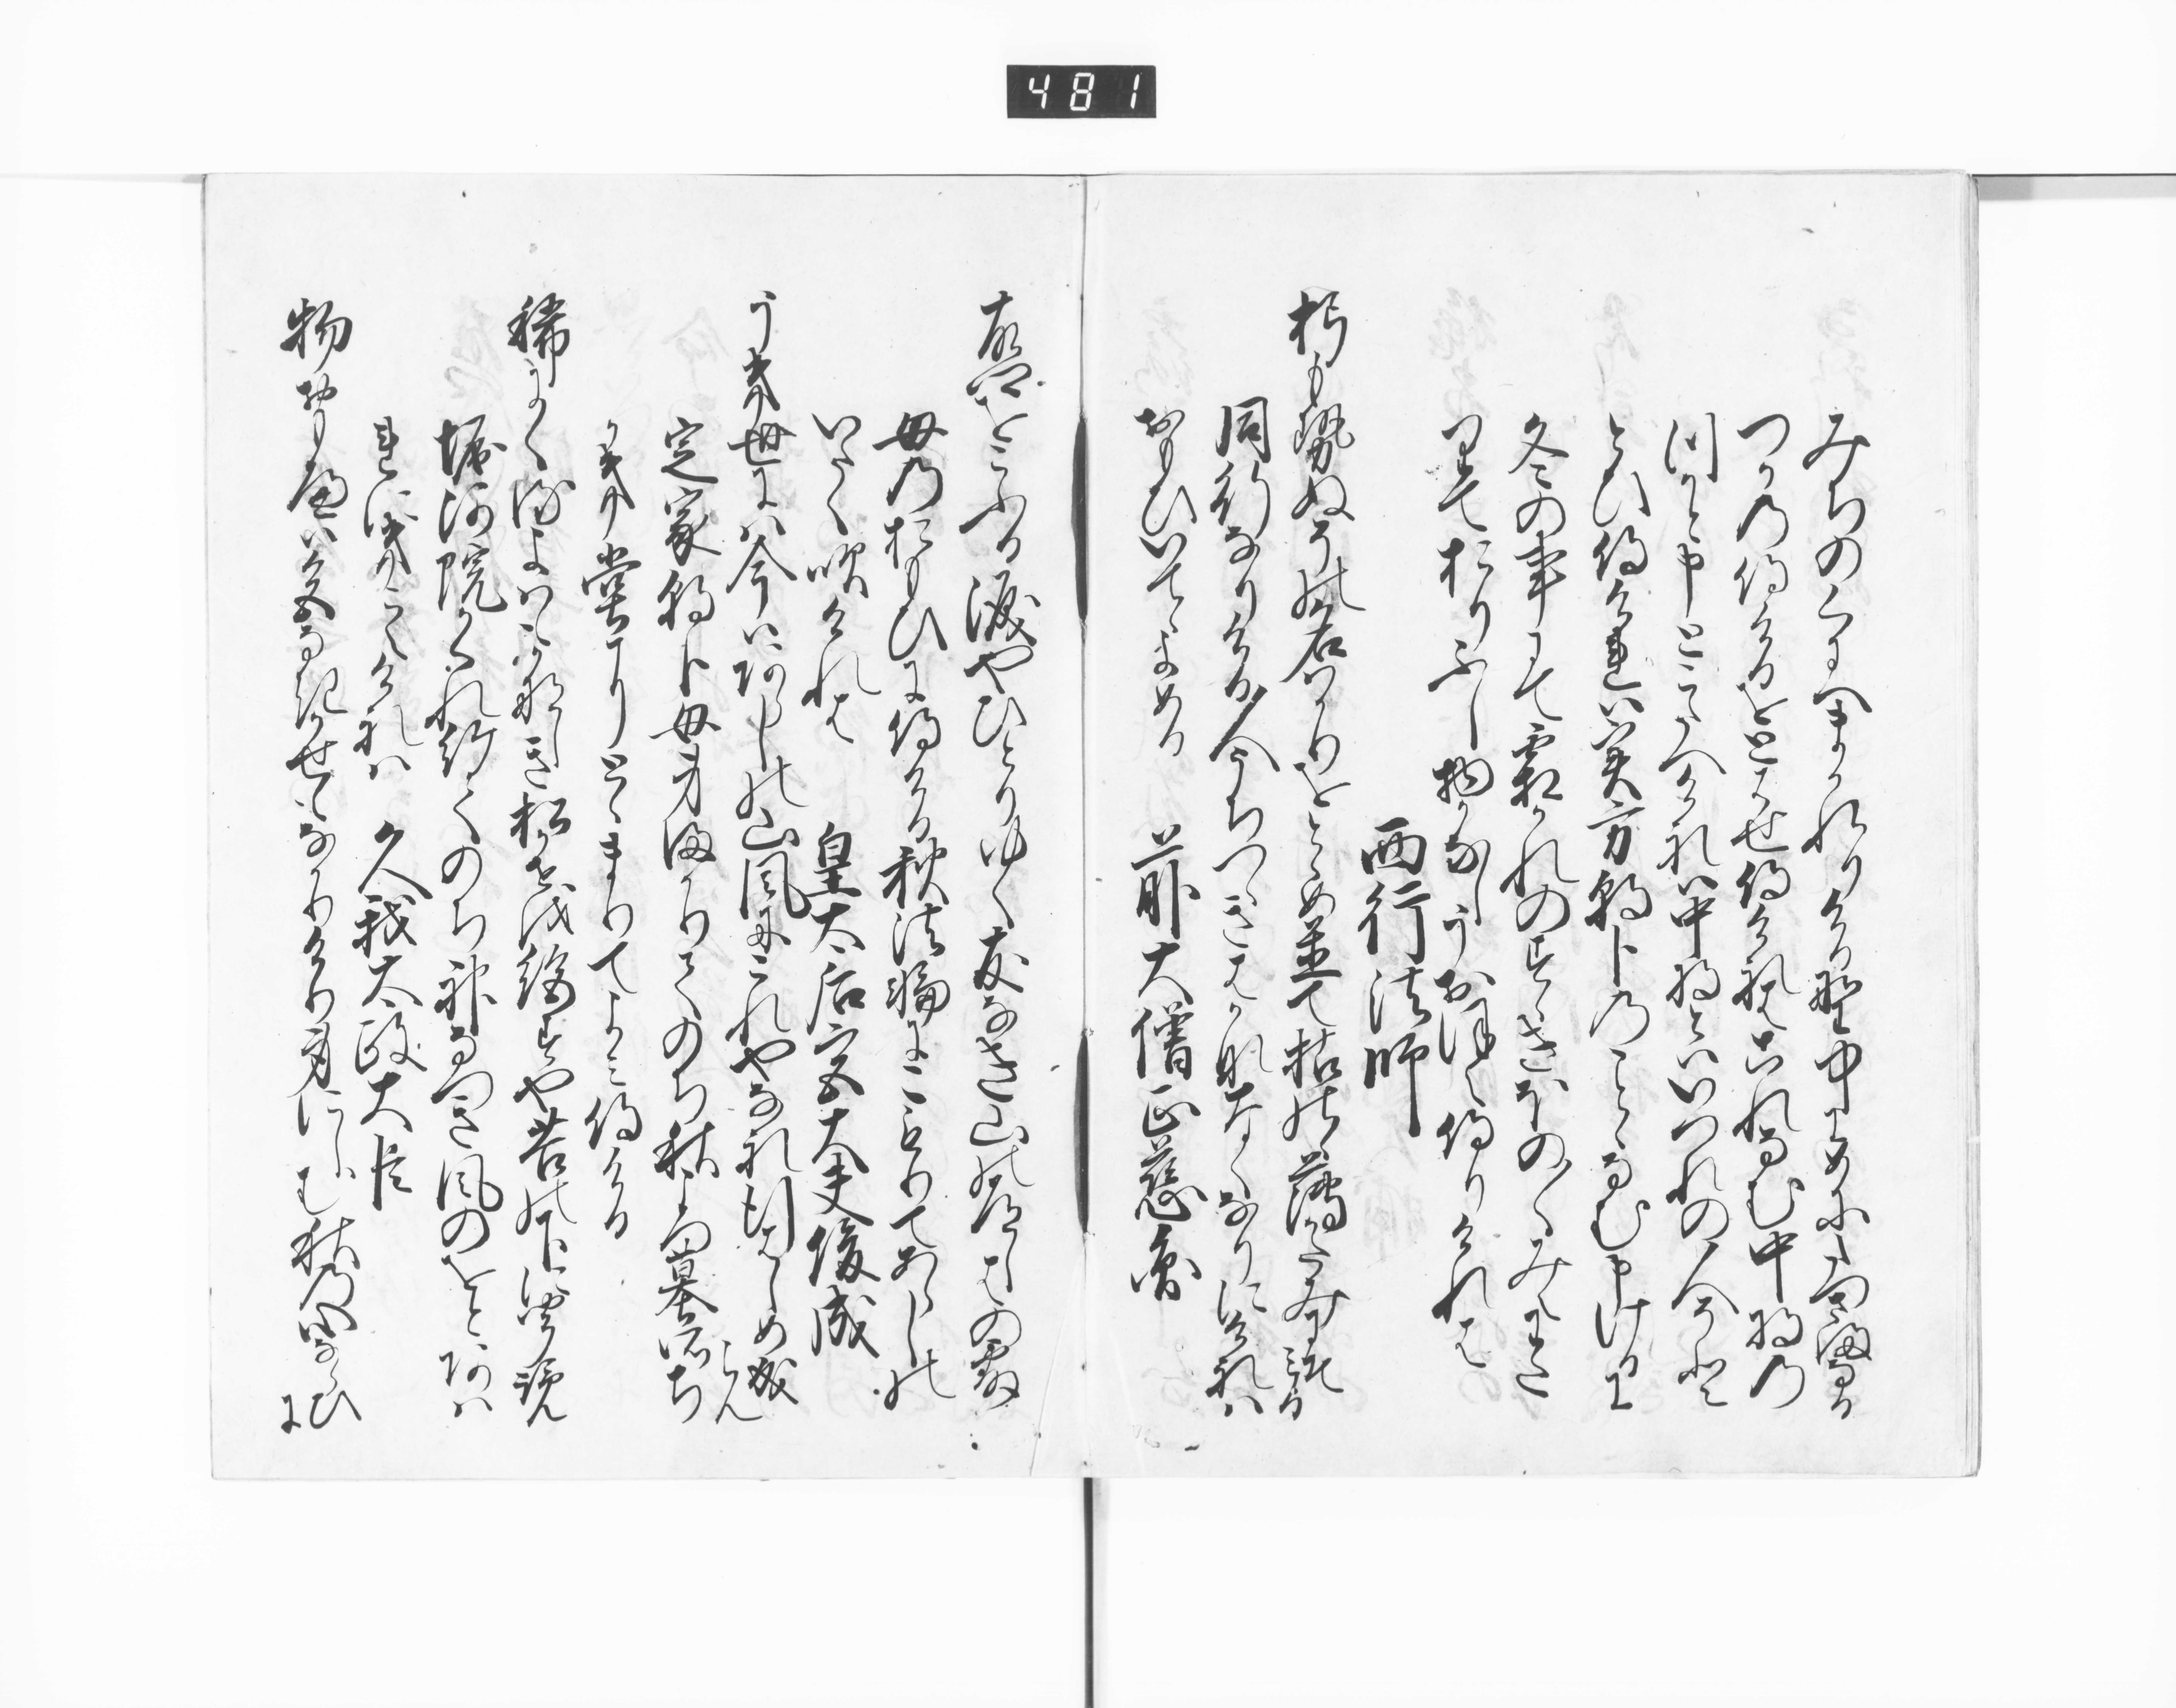 481
みちのくにへまかれりける野中にめにたつさまなる
つかの侍けるをとはせ侍けれはこれなむ中将の
つかと申とこたへけれは中将とはいつれの人そと
とひ侍けれは実方朝臣のことゝなむ申けるに
冬の事にて霜かれのすゝきほの〱みえわた
りておりふし物かなしうおほえ侍りけれは
西行法師
朽もせぬその名はかりをとゝめ置て枯野の薄かたみにそみる
同行なりける人うちつゝきはかなくなりにけれは
おもひいてゝよめる
前大僧正慈圓
故郷をこふる涙やひとりゆく友なき山の道しはの露
母のおもひに侍ける秋法輪にこもりてあらしの
いたく吹けれは
皇太后宮大夫俊成
うき世には今はあらしの山風にこれやなれ行はしめ成らん
定家朝臣母身まかりてのち秋ころ墓所ち
かき堂にとまりてよみ侍ける
稀にくる夜はもかなしき松風を絶すや苔の下に聞覧
堀河院かくれ給てのち神な月風のをとあは
れにきこえけれは
久我太政大臣
物おもへは色なき風もなかりけり身にしむ秋の心ならひに